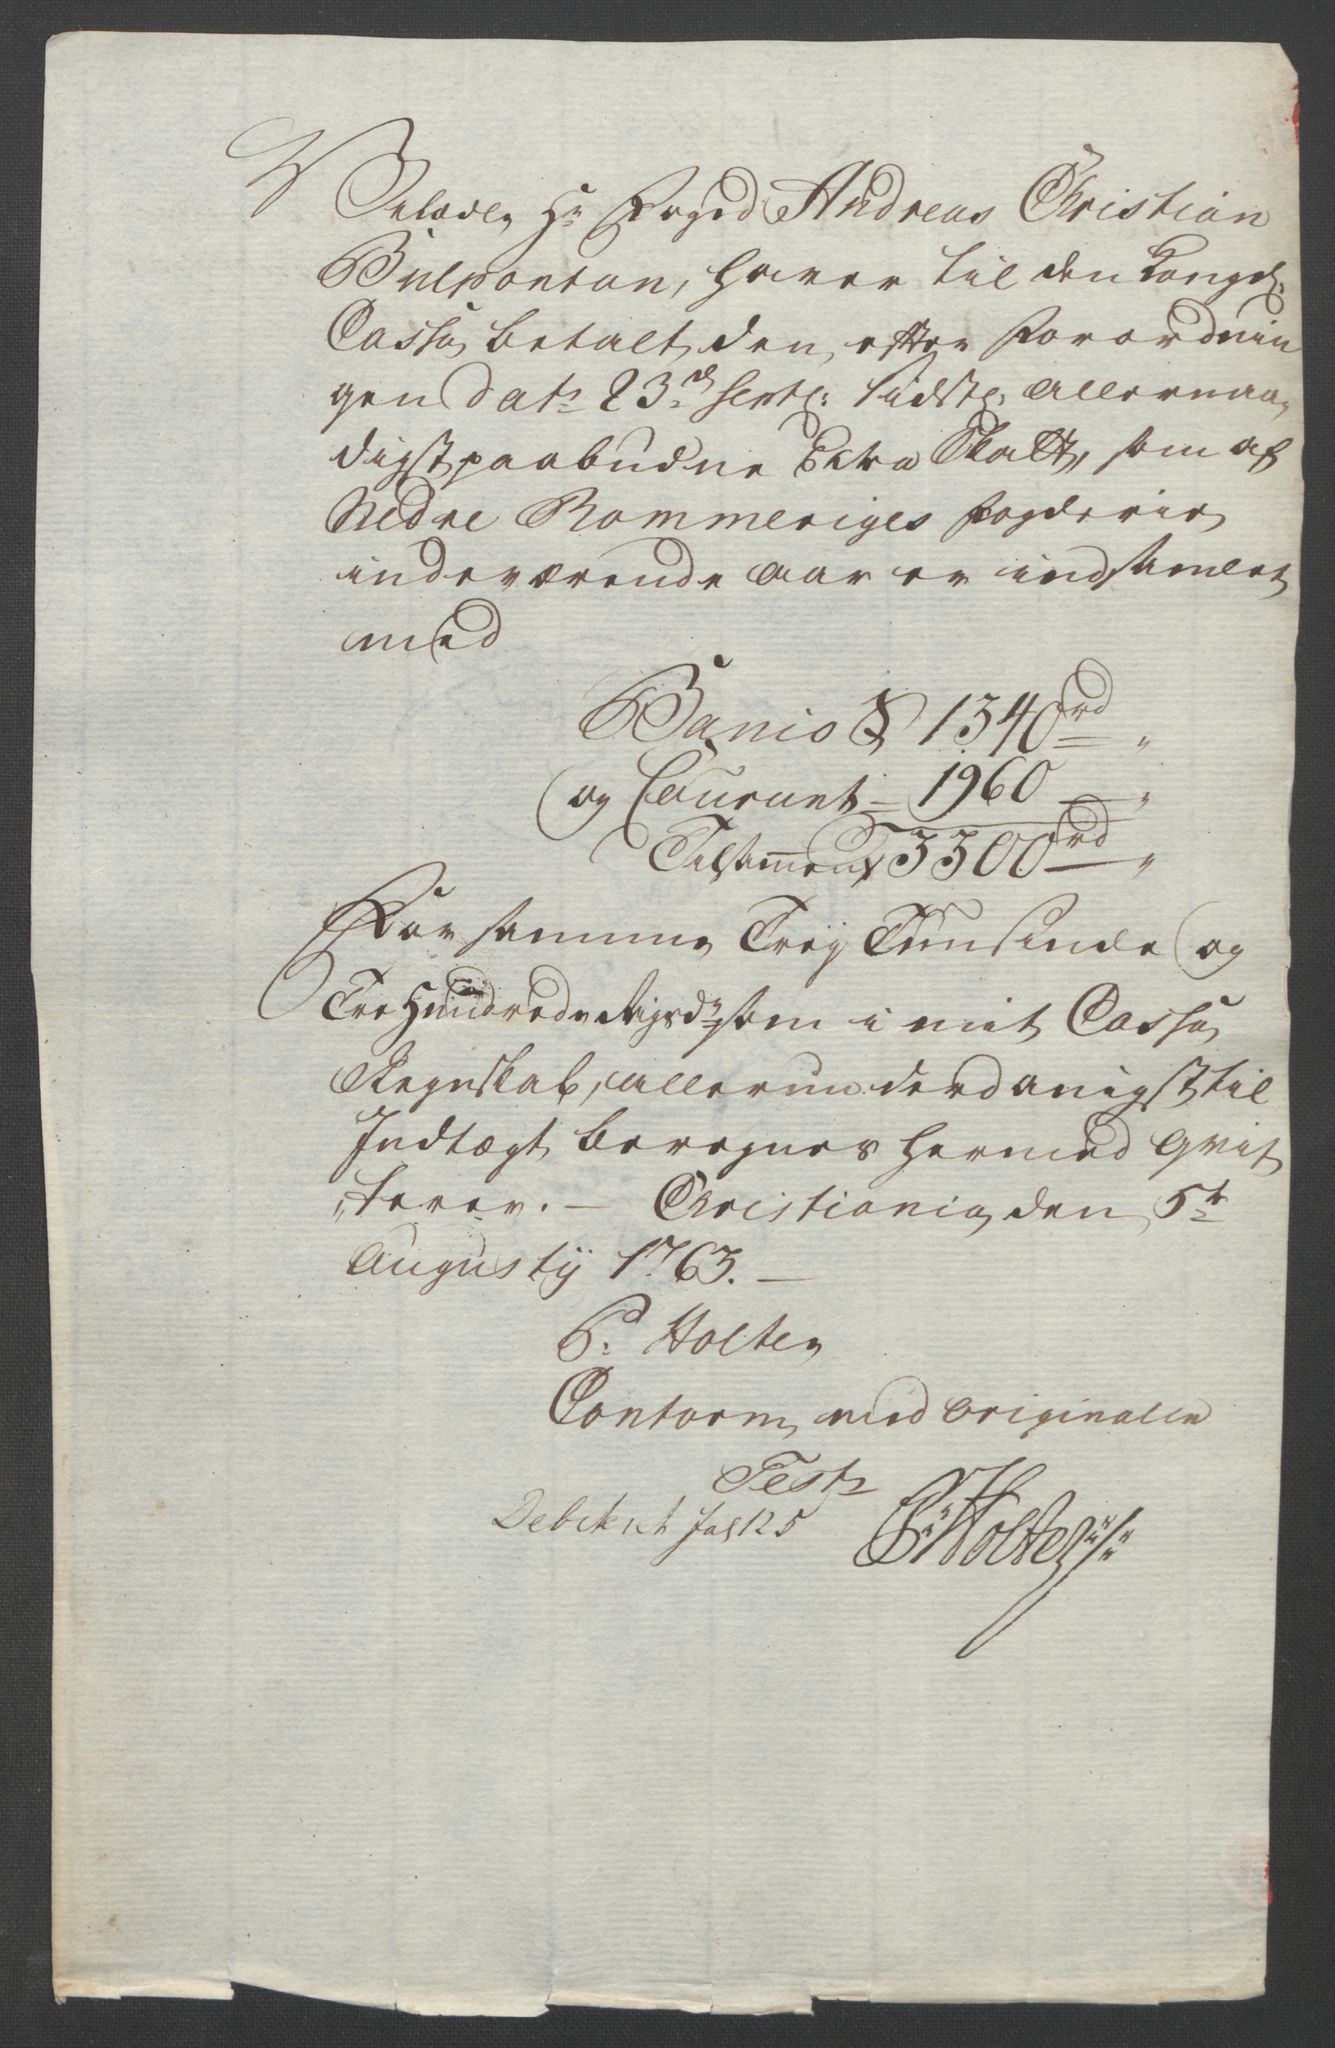 Velædle Hr Foged Andreas Christian
Bulpontan, haver til den Kongel:
Cassa betalt den, efter Forordnin
gen dat: 23de Septb: sidstl: allernaa,
digst paabudne Extra Skatt, som af
Nedre Rommeriges Fogderie
indeværende aar er indsamlet
med
Banco S 1340 rd "
og Courant - 1960 "
Tilsammen 3300 rd "
For samme Trej Tuusinde og
Tre Hundrede Rigsdr som i mit Cassa
Regnskab, allerunderdanigst til
Indtægt beregnes hermed qvit
,terer. - Christiania den 5te
Augustij 1763. -
P. Holten
Conform med originalen
Test:
P: Holten